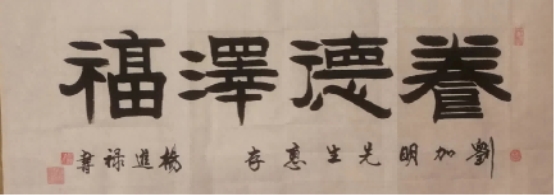 養德澤福
劉加明先生惠存 進禄書